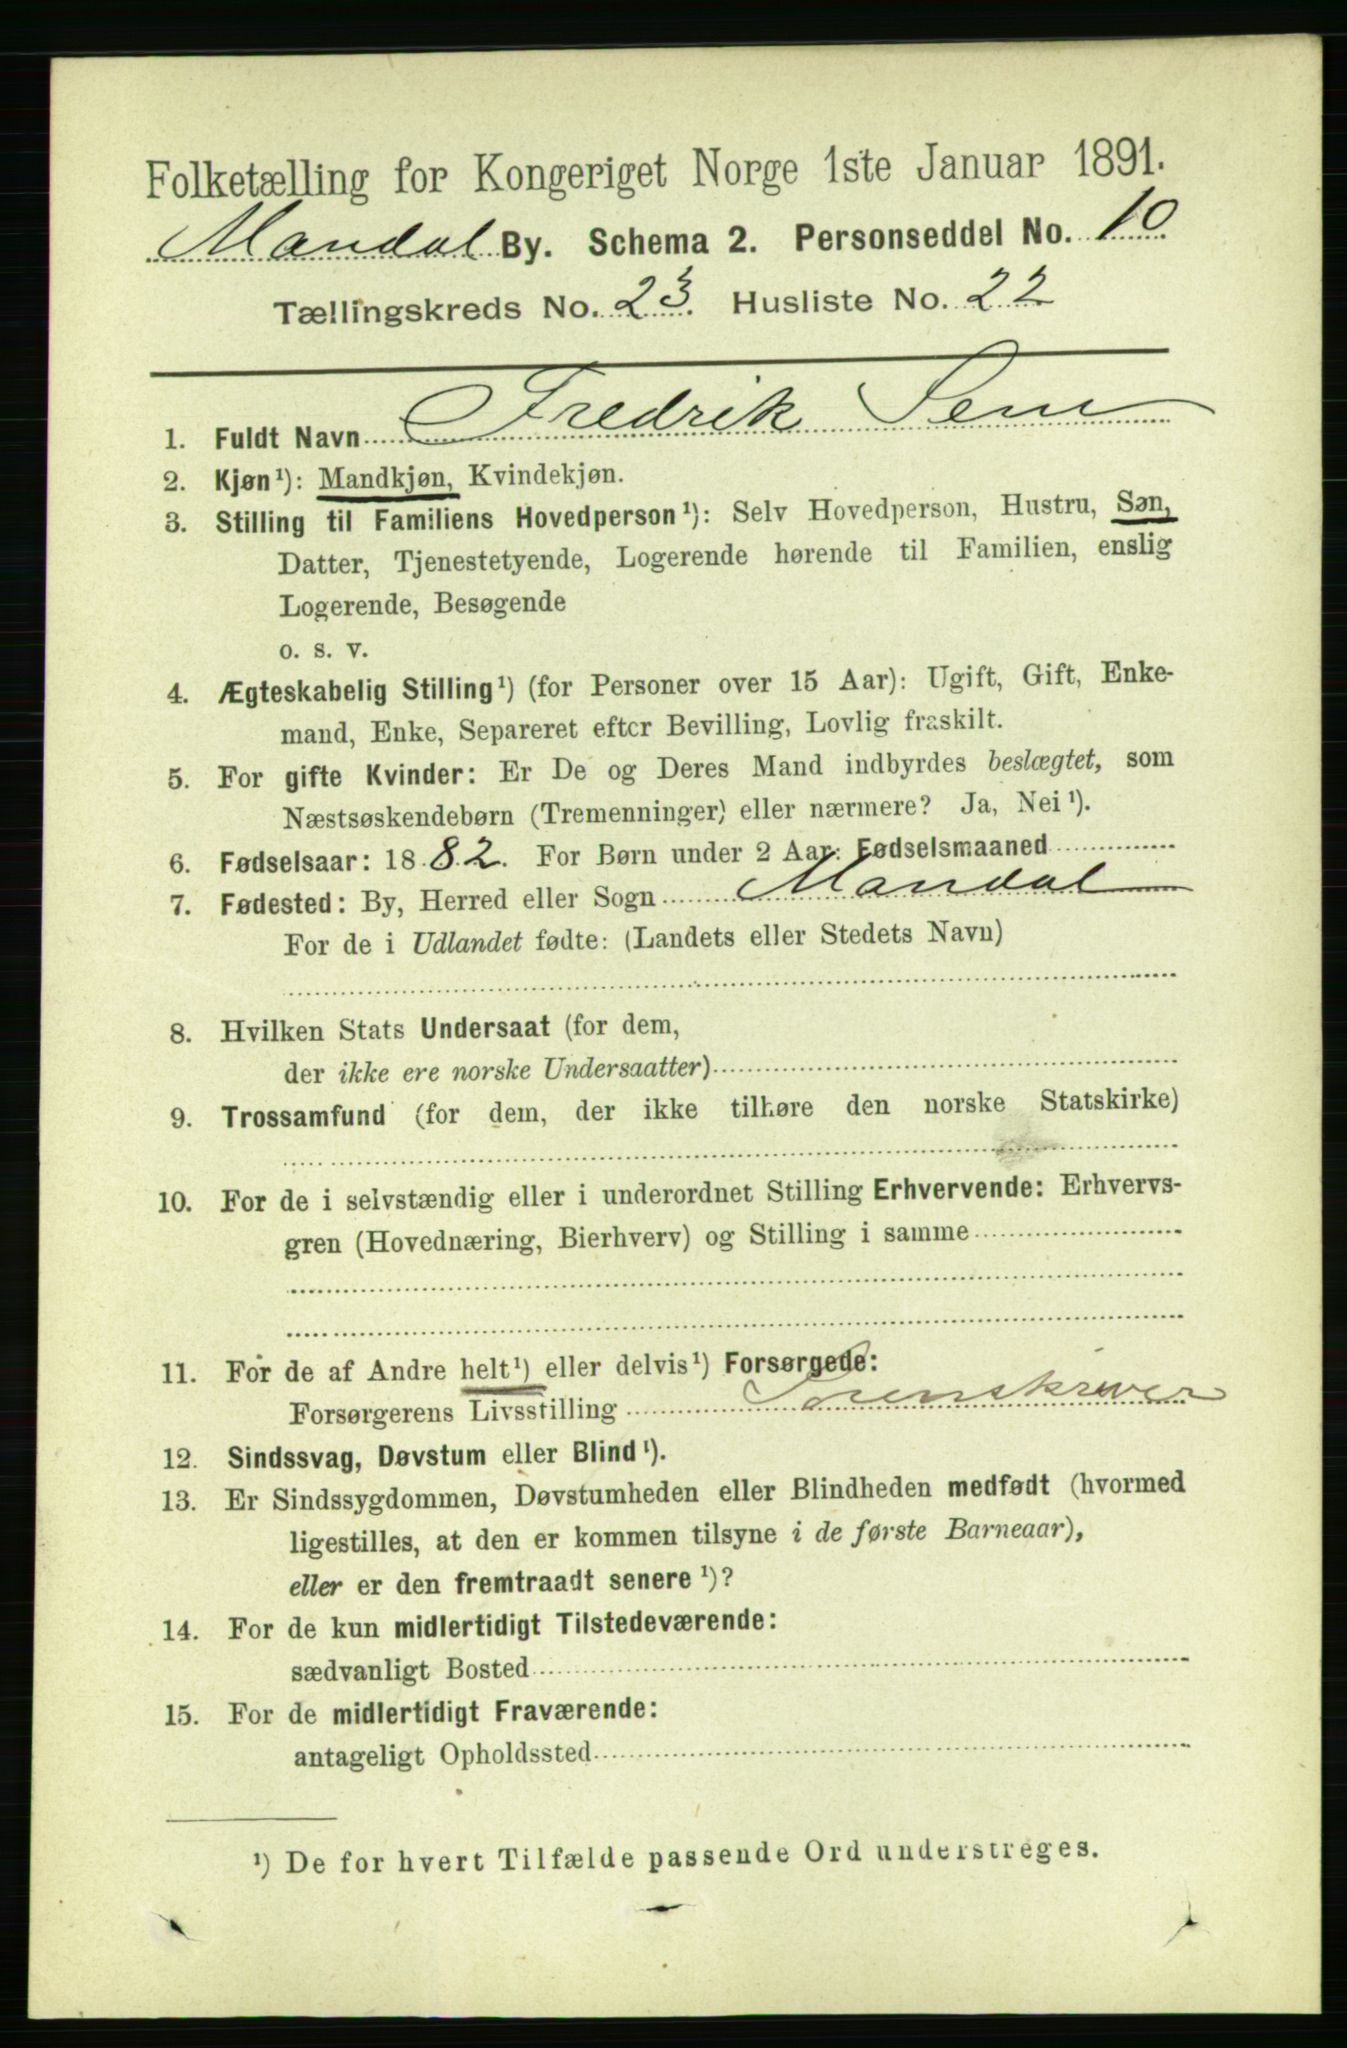 Folketælling for Kongeriget Norge 1ste Januar 1891.
Mandal By. Schema 2. Personseddel No. 10
Tællingskreds No. 23. Husliste No. 22
1. Fuldt Navn Fredrik Sem
2. Kjøn¹): Mandkjøn, Kvindekjøn.
3. Stilling til Familiens Hovedperson¹): Selv Hovedperson, Hustru, Søn,
Datter, Tjenestetyende, Logerende hørende til Familien, enslig
Logerende, Besøgende
o. s. v.
4. Ægteskabelig Stilling¹) (for Personer over 15 Aar): Ugift, Gift, Enke-
mand, Enke, Separeret efter Bevilling, Lovlig fraskilt.
5. For gifte Kvinder: Er De og Deres Mand indbyrdes beslægtet, som
Næstsøskendebørn (Tremenninger) eller nærmere? Ja, Nei¹).
6. Fødselsaar: 1882. For Børn under 2 Aar: Fødselsmaaned
7. Fødested: By, Herred eller Sogn Mandal
For de i Udlandet fødte: (Landets eller Stedets Navn)
8. Hvilken Stats Undersaat (for dem,
der ikke ere norske Undersaatter)
9. Trossamfund (for dem, der ikke tilhøre den norske Statskirke)
10. For de i selvstændig eller i underordnet Stilling Erhvervende: Erhvervs-
gren (Hovednæring, Bierhverv) og Stilling i samme
11. For de af Andre helt¹) eller delvis¹) Forsørgede:
Forsørgerens Livsstilling Sorenskriver
12. Sindssvag, Døvstum eller Blind¹).
13. Er Sindssygdommen, Døvstumheden eller Blindheden medfødt (hvormed
ligestilles, at den er kommen tilsyne i de første Barneaar),
eller er den fremtraadt senere¹)?
14. For de kun midlertidigt Tilstedeværende:
sædvanligt Bosted
15. For de midlertidigt Fraværende:
antageligt Opholdssted
¹) De for hvert Tilfælde passende Ord understreges.